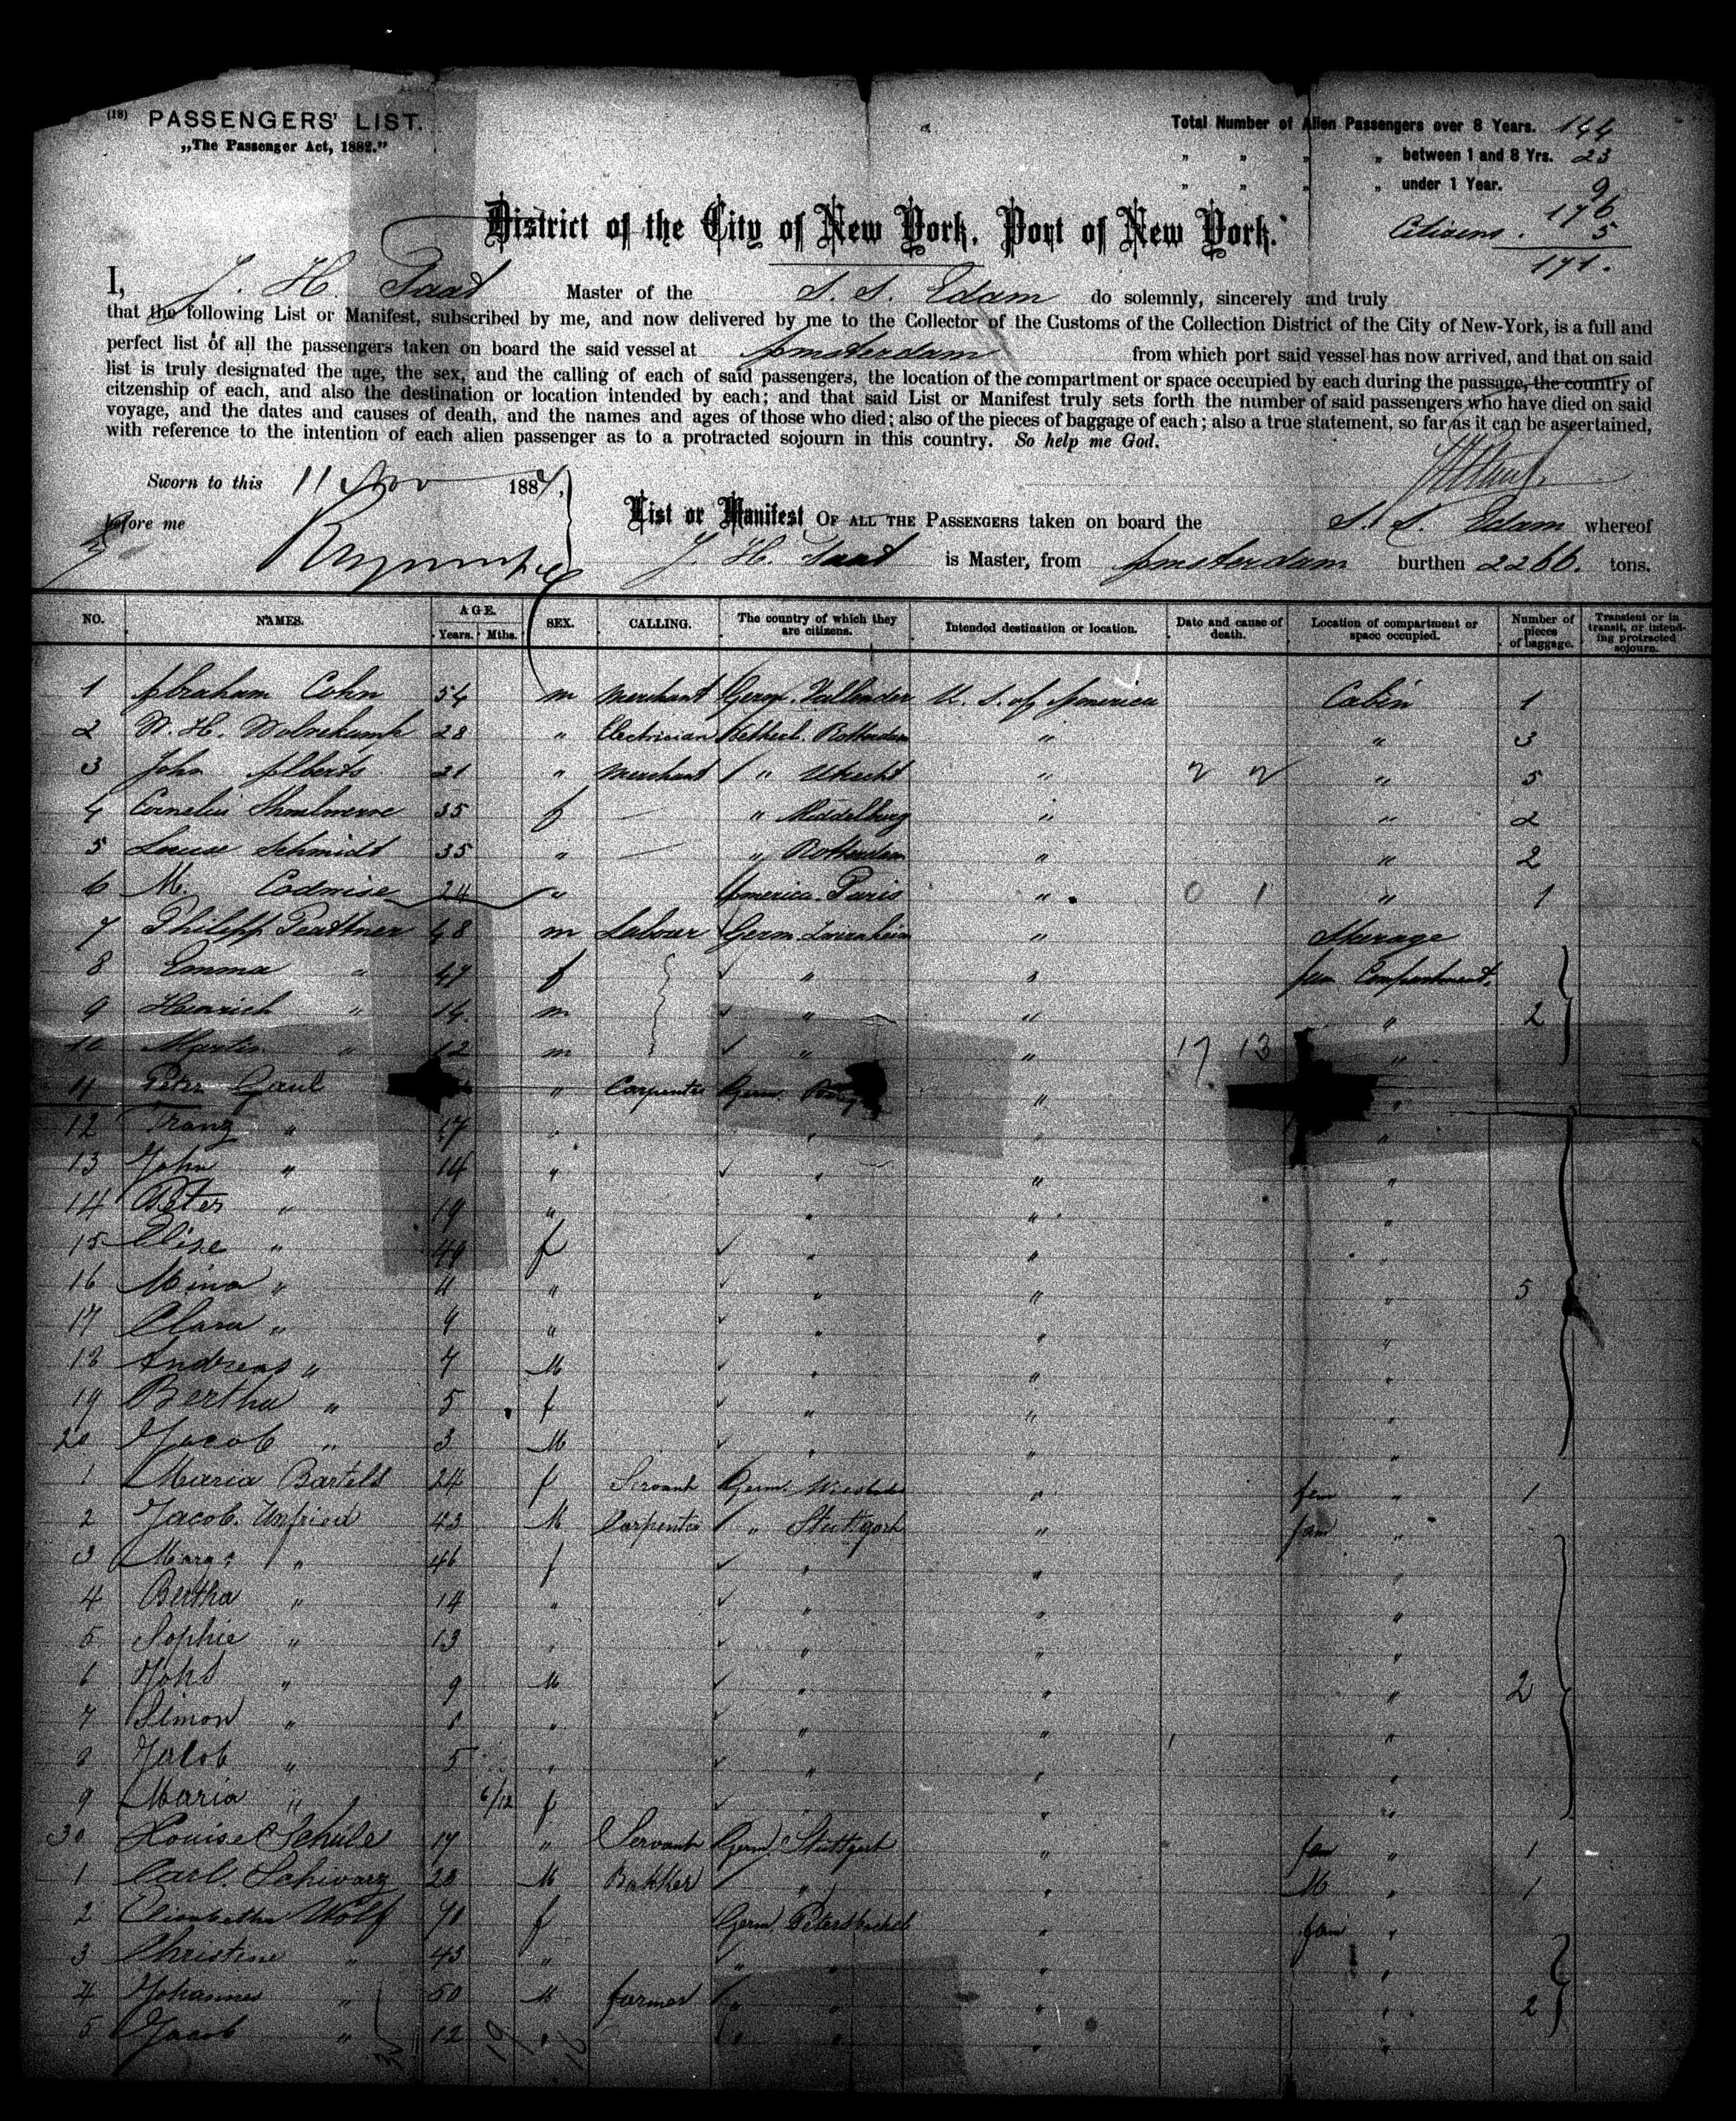 (18) PASSENGERS' LIST.
„The Passenger Act, 1882."
Total Number of Alien Passengers over 8 Years. 144
„ „ „ „ between 1 and 8 Yrs. 23
„ „ „ „ under 1 Year. 9
176
Citizens. 5
171.
District of the City of New York. Port of New York.
I, J. H. Taat Master of the S. S. Edam do solemnly, sincerely and truly
that the following List or Manifest, subscribed by me, and now delivered by me to the Collector of the Customs of the Collection District of the City of New-York, is a full and
perfect list of all the passengers taken on board the said vessel at Amsterdam from which port said vessel has now arrived, and that on said
list is truly designated the age, the sex, and the calling of each of said passengers, the location of the compartment or space occupied by each during the passage, the country of
citzenship of each, and also the destination or location intended by each; and that said List or Manifest truly sets forth the number of said passengers who have died on said
voyage, and the dates and causes of death, and the names and ages of those who died; also of the pieces of baggage of each; also a true statement, so far as it can be ascertained,
with reference to the intention of each alien passenger as to a protracted sojourn in this country. So help me God.
Sworn to this 11 Nov 1884,
before me
List or Manifest OF ALL THE PASSENGERS taken on board the S. S. Edam whereof
J. H. Taat is Master, from Amsterdam burthen 2260. tons.
NO. NAMES. AGE. Years. Mths. SEX. CALLING. The country of which they are citizens. Intended destination or location. Date and cause of death. Location of compartment or space occupied. Number of pieces of baggage. Transient or in transit, or intending protracted sojourn.
1 Abraham Cohn 54 m Merchant Germ. U. S. of America Cabin 1
2 W. H. 28 " Electrician Netherl. Rotterdam " " 3
3 John Alberts 21 " Merchant " Utrecht " " 5
4 Cornelia 35 f — " Middelburg " " 2
5 Louise Schmidt 35 " — " Rotterdam " " 2
6 M. Codwise 24 " America. Paris " 0 1 " 1
7 Philipp 48 m Labour Germ. " Sterage
8 Emma " 47 f " " fam. Compartment.
9 Heinrich " 14 m " " " 2
10 Martin " 12 m " " 17 13 "
11 Peter Gaul " Carpenter Germ. " "
12 Franz " 17 " " " "
13 John " 14 " " " "
14 Peter " 19 " " " "
15 Elise " 49 f " " "
16 Mina " 11 " " " " 5
17 Clara " 9 " " " "
18 Andreas " 7 M " " "
19 Bertha " 5 f " " "
20 Jacob " 3 M " " "
1 Maria Bartels 24 f Servant Germ. " fem " 1
2 Jacob. Unfried 43 M Carpenter " Stuttgart " fam "
3 " 46 f " " "
4 Bertha " 14 " " " "
5 Sophie " 13 " " " "
6 Johs " 9 M " " " 2
7 Simon " 8 " " " "
8 Jacob " 5 " " " "
9 Maria " 6/12 f " " "
30 Louise Schüle 17 " Servant Germ. Stuttgart " fem " 1
1 Carl. Schwarz 28 M Bakker " " M " 1
2 Elisabetha Wolf 70 f Germ. " fam "
3 Christine " 43 " " " " "
4 Johannes " 50 M farmer " " " " 2
5 Jacob " 12 " " " " "